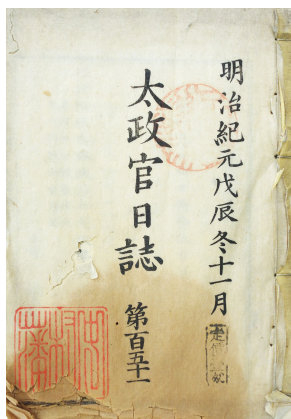 明治紀元戊辰冬十一月
太政官日誌 第百五十一